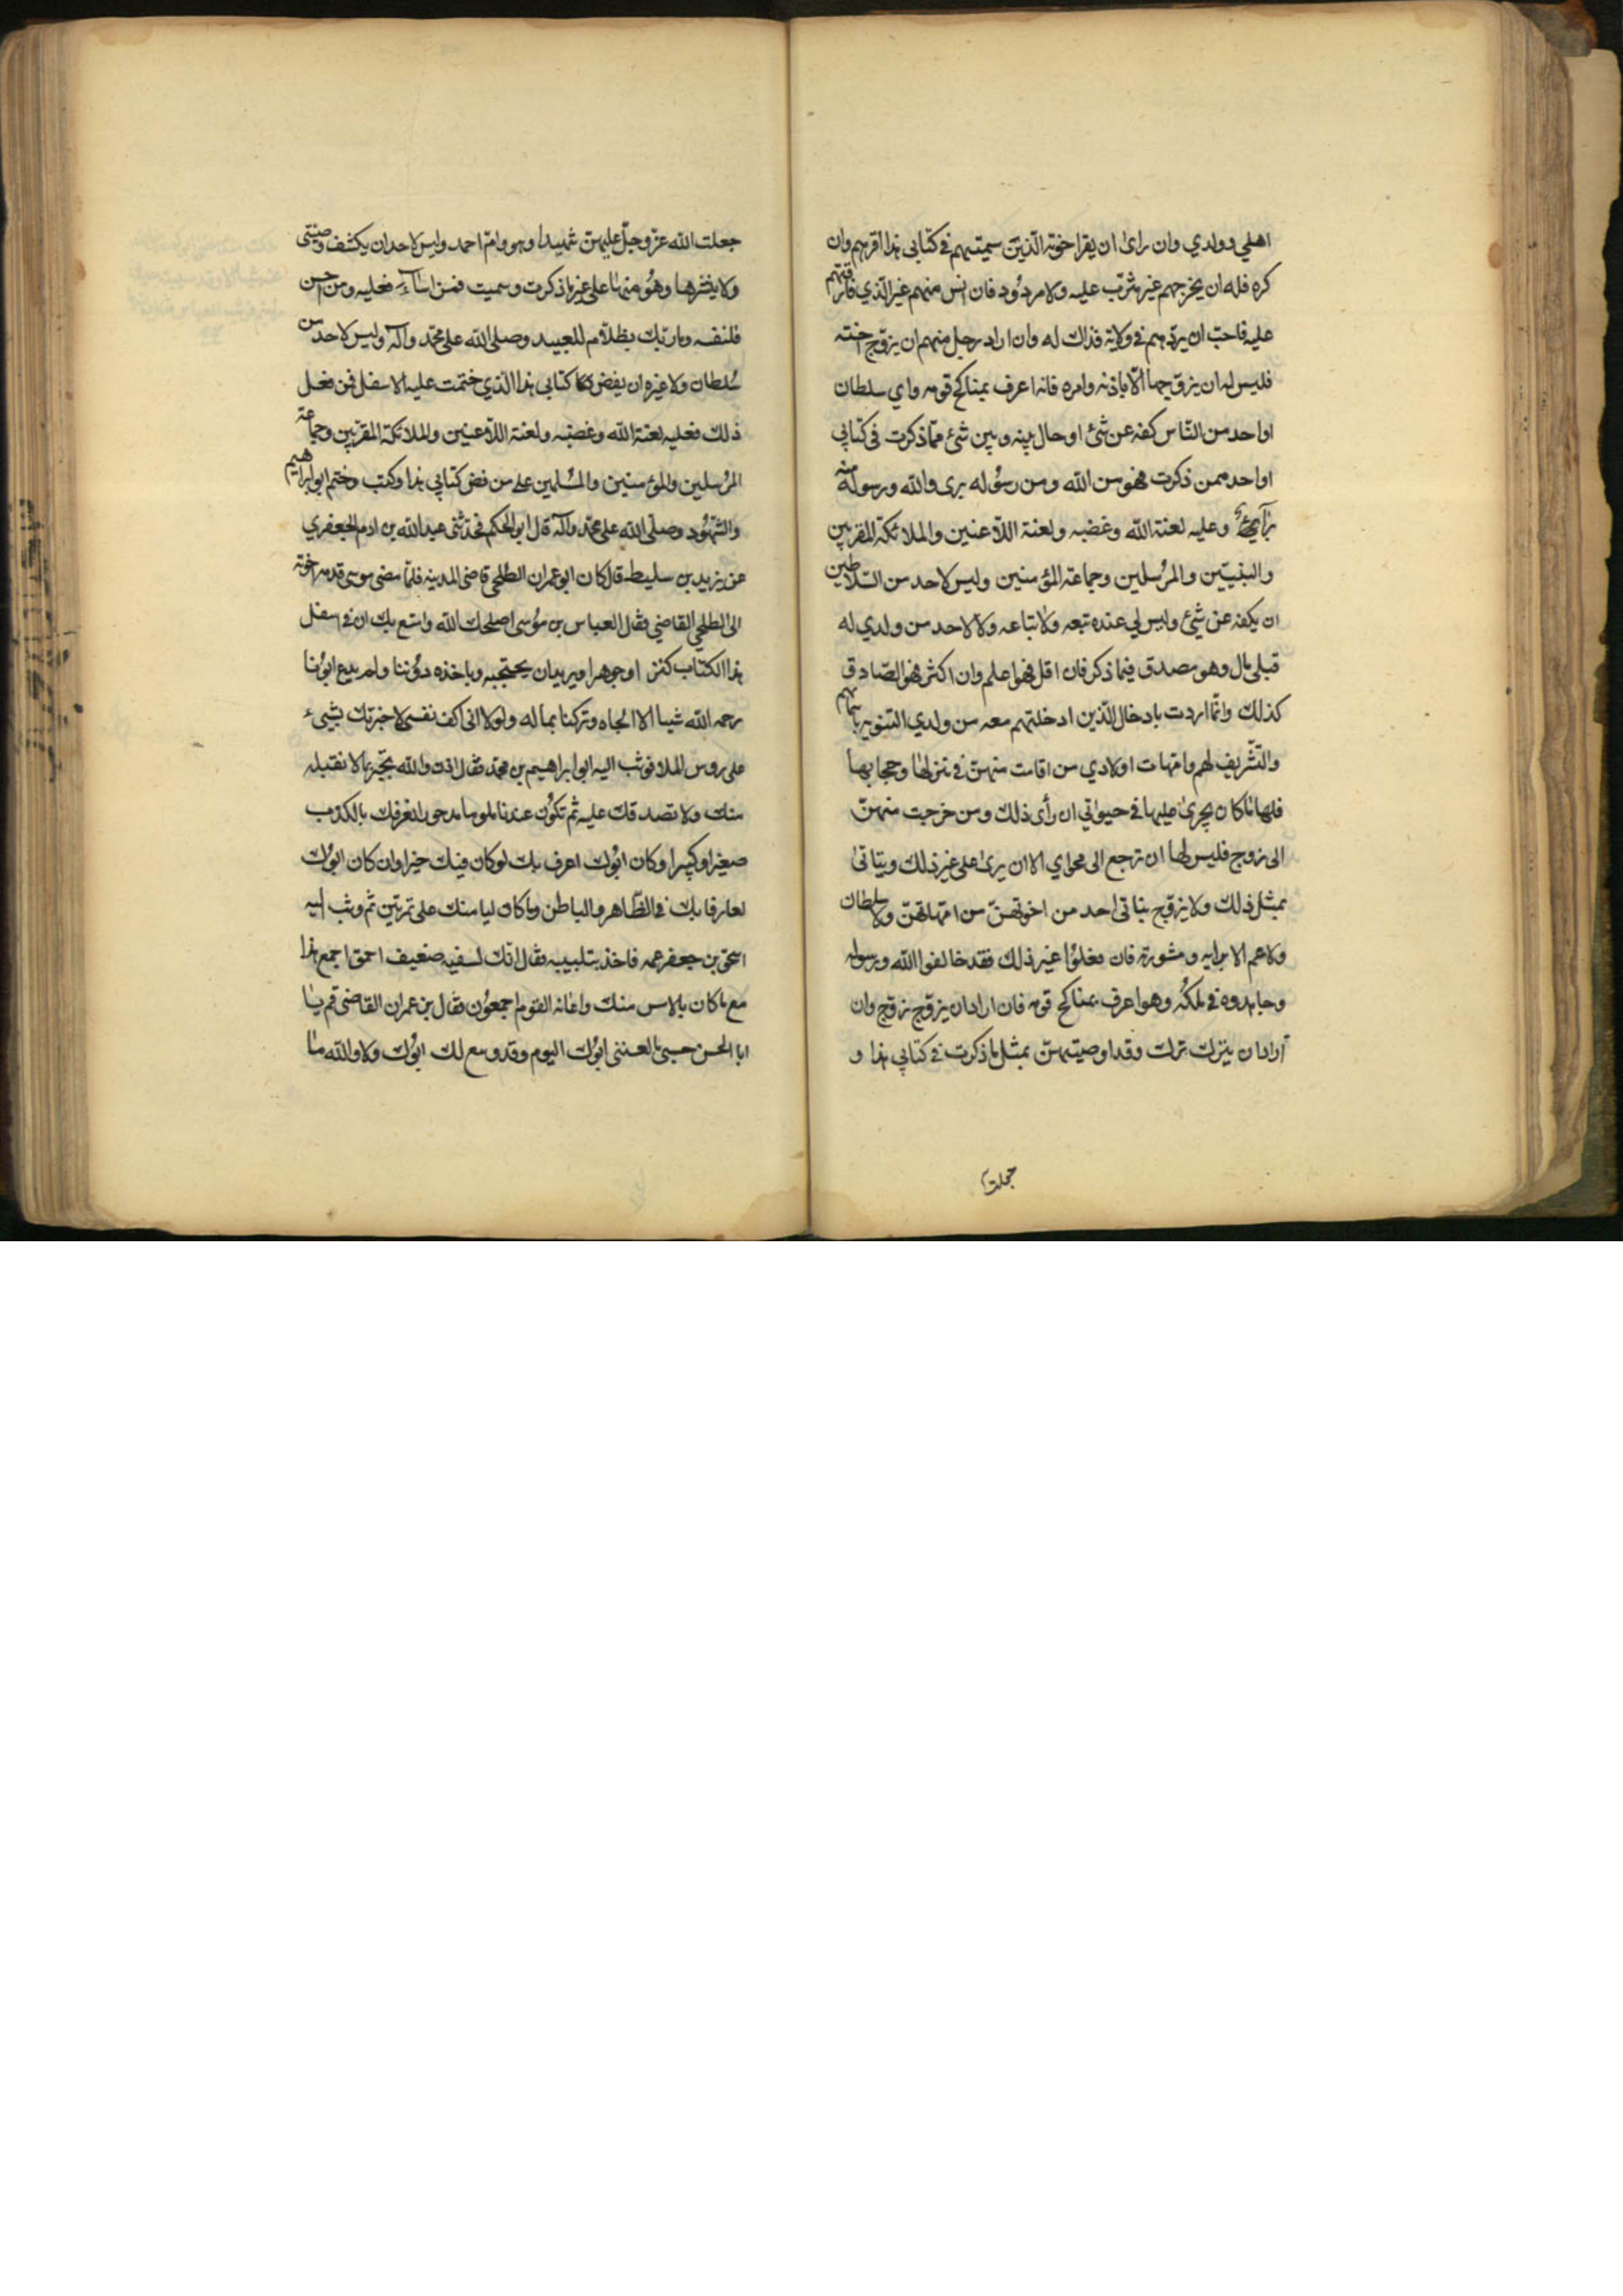 اهلي وولدي وان راى ان يقر اخوته الّذين سميتهم في كتابي هذا اقرهم وان
كره فله ان يخرجهم غير مثرّب عليه ولا مردُود فان انس منهم غير الّذي فارقتهم
عليه فاحبّ ان يردّهم في ولاية فذاك له وان اراد رجل منهم ان يزوّج اخته
فليس له ان يزوّجها الّا باذنه وامره فانه اعرف بمناكح قومه واي سلطان
او احد من النّاس كفه عن شئ او حال بينه وبين شئ ممّا ذكرت في كتابي
او احد ممن ذكرت فهو من الله ومن رسُوله برى والله ورسوله منه
برآءٌ وعليه لعنة الله وغضبه ولعنة اللّاعنين والملائكة المقربين
والنبيّين والمرُسلين وجماعة المؤمنين وليس لاحد من السّلاطين
ان يكفه عن شئ وليس لي عنده تبعه ولا تباعه ولا لاحد من ولدي له
قبلي مال وهو مصدق فيما ذكر فان اقل فهو اعلم وان اكثر فهو الصّادق
كذلك وانّما اردت بادخال الّذين ادخلتهم معه من ولدي التنويه باسمائهم
والتّشريف لهم وامّهات اولادي من اقامت منهنّ في منزلها وحجابها
فلها ما كان يجرى عليها في حيوتي ان رأى ذلك ومن خرجت منهنّ
الى زوج فليس لها ان ترجع الى محواي الا ان يرى على غير ذلك وبناتى
بمثل ذلك ولا يزوّج بناتى احد من اخوتهنّ من امّهاتهنّ ولا سلطان
ولا عم الا برايه ومشورته فان فعلوُا غير ذلك فقد خالفوا الله ورسوله
وجاهدوه في ملكُه وهو اعرف بمناكح قومه فان اراد ان يزوّج زوّج وان
أراد ان يترك ترك وقد اوصيتهنّ بمثل ما ذكرت في كتابي هذا و
جعلت
جعلت الله عزّ وجلّ عليهنّ شهيدا وهو وامّ احمد وليس لاحد ان يكشف وصيّتى
ولا ينشرها وهوُ منها على غير ما ذكرت وسميت فمن اساء فعليه ومن احسن
فلنفسه وما ربّك بظلّام للعبيد وصلى الله على محمّد وآله وليس لاحد من
سُلطان ولا غيره ان يفض كتابى هذا الّذي ختمت عليه الاسفل فمن فعل
ذلك فعليه لعنة الله وغضبه ولعنة اللّاعنين والملائكة المقرّبين وجماعة
المرُسلين والمؤمنين والمسُلمين على من فض كتابي هذا وكتب وختم ابو ابراهيم
والشّهُود وصلّى الله على محمّد وآله قال ابو الحكم فحدّثنى عبد الله بن ادم الجعفري
عن يزيد بن سليط قال كان ابو عمران الطلحي قاضى المدينة فلمّا مضى موسى قدمه اخوته
الى الطلحي القاضي فقال العباس بن موُسى اصلحك الله وامتع بك ان في اسفل
هذا الكتاب كنز او جوهرا ويريد ان يحتجبه وياخذه دوُننا ولم يدع ابوُنا
رحمه الله شيئا الا الجاه وتركنا عاله ولولا انى اكف نفسى لاخبرتك بشىء
على روس الملا فوثب اليه ابراهيم بن محمّد فقال اذن والله تخبر بما لا نقبله
منك ولا نصدقك عليه ثم تكوُن عندنا ملوما مدحورا نعرفك بالكذب
صغيرا وكبيرا وكان ابوُك اعرف بك لو كان فيك خيرا وان كان ابوُك
لعارفا بك في الظّاهر والباطن وما كان ليامنك على تمرتين ثم وثب اليه
اسحق بن جعفر عمه فاخذ بتلبيبه فقال انّك لسفيه ضعيف احمق اجمع هذا
مع ما كان بالامس منك واعانه القوم اجمعوُن فقال بن عمران القاضى قم يا
ابا الحسن حسبى ما لعننى ابوُك اليوم وقد وسع لك ابوُك ولا والله ما